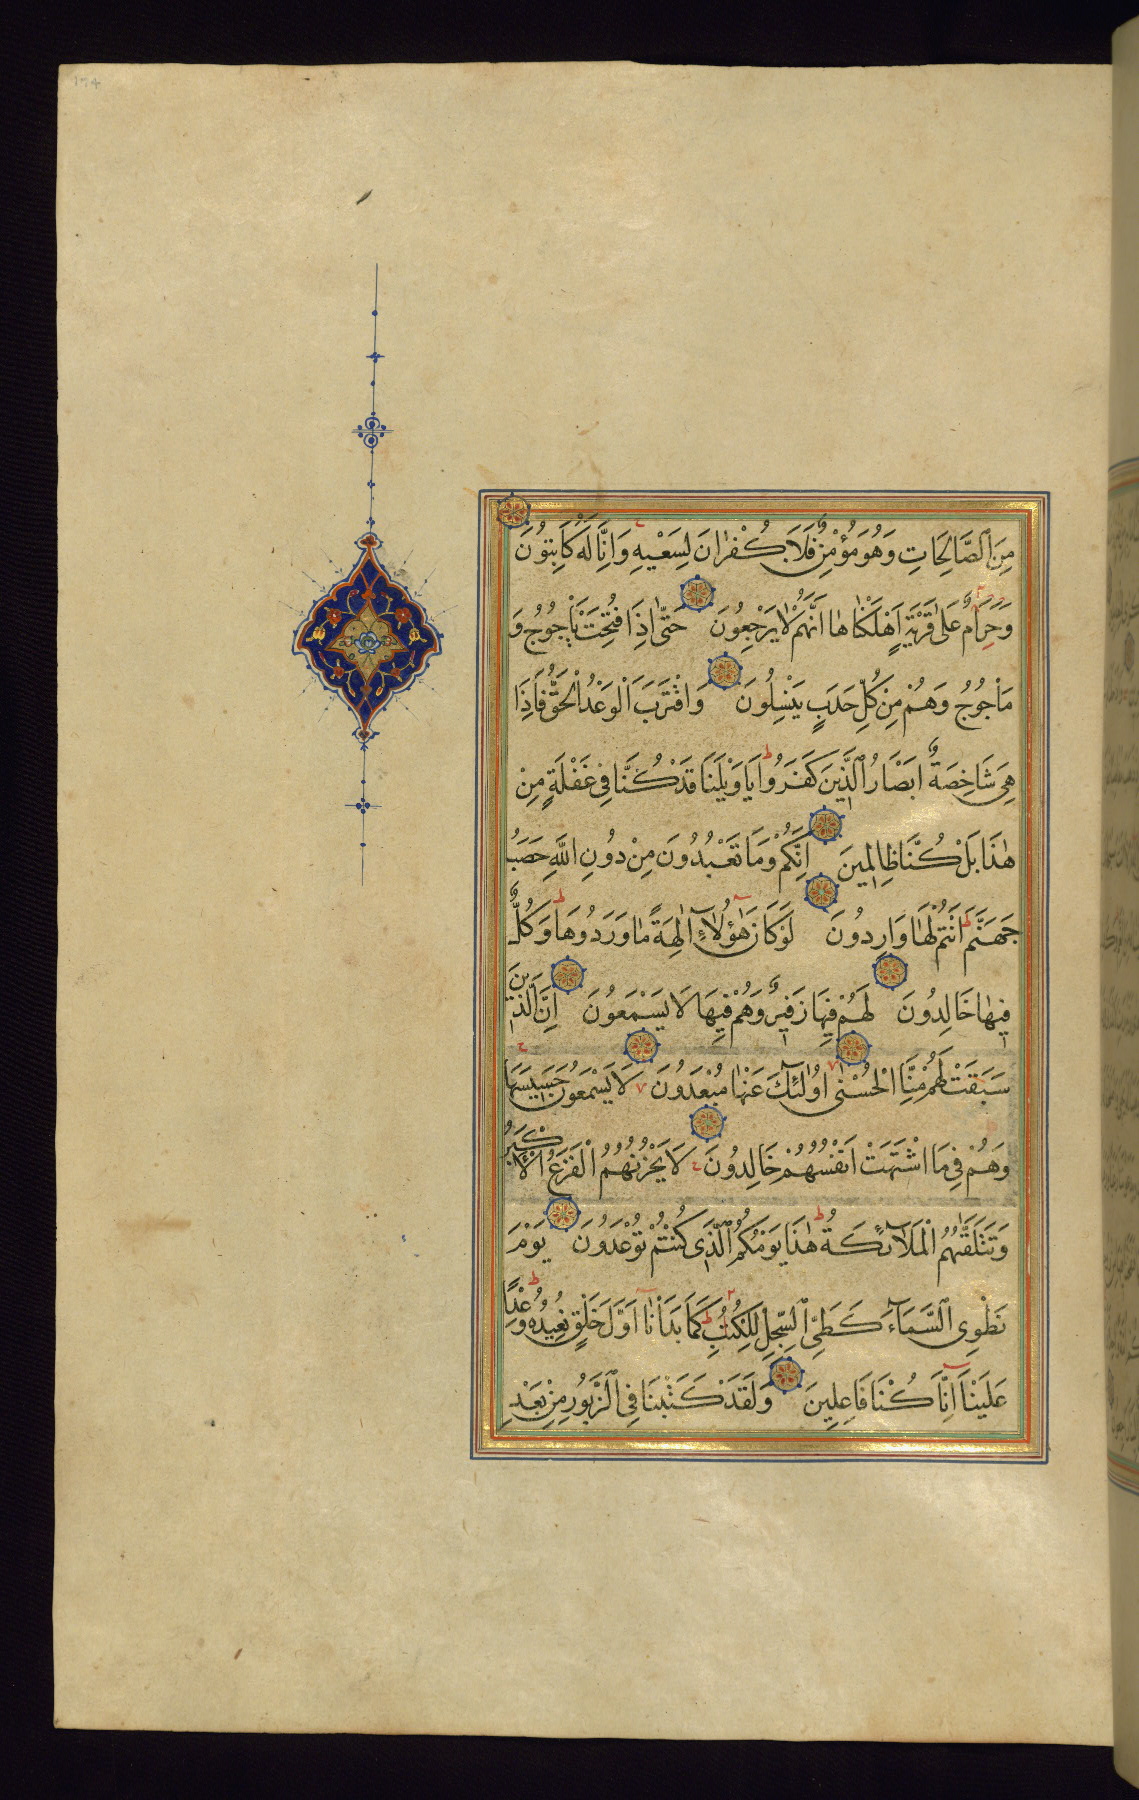 مِنَ الصَّالِحَاتِ وَهُوَ مُؤْمِنٌ فَلَا كُفْرَانَ لِسَعْيِهِ وَاِنَّا لَهُ كَاتِبُونَ
وَحَرَامٌ عَلٰى قَرْيَةٍ اَهْلَكْنَاهَا اَنَّهُمْ لَا يَرْجِعُونَ حَتّٰى اِذَا فُتِحَتْ يَأْجُوجُ وَ
مَأْجُوجُ وَهُمْ مِنْ كُلِّ حَدَبٍ يَنْسِلُونَ وَاقْتَرَبَ الْوَعْدُ الْحَقُّ فَاِذَا
هِيَ شَاخِصَةٌ اَبْصَارُ الَّذِينَ كَفَرُوا يَا وَيْلَنَا قَدْ كُنَّا فِي غَفْلَةٍ مِنْ
هٰذَا بَلْ كُنَّا ظَالِمِينَ اِنَّكُمْ وَمَا تَعْبُدُونَ مِنْ دُونِ اللّٰهِ حَصَبُ
جَهَنَّمَ اَنْتُمْ لَهَا وَارِدُونَ لَوْ كَانَ هٰؤُلَاءِ اٰلِهَةً مَا وَرَدُوهَا وَكُلٌّ
فِيهَا خَالِدُونَ لَهُمْ فِيهَا زَفِيرٌ وَهُمْ فِيهَا لَا يَسْمَعُونَ اِنَّ الَّذِينَ
سَبَقَتْ لَهُمْ مِنَّا الْحُسْنٰى اُولٰئِكَ عَنْهَا مُبْعَدُونَ لَا يَسْمَعُونَ حَسِيسَهَا
وَهُمْ فِي مَا اشْتَهَتْ اَنْفُسُهُمْ خَالِدُونَ لَا يَحْزُنُهُمُ الْفَزَعُ الْاَكْبَرُ
وَتَتَلَقّٰيهُمُ الْمَلَآئِكَةُ هٰذَا يَوْمُكُمُ الَّذِي كُنْتُمْ تُوعَدُونَ يَوْمَ
نَطْوِي السَّمَآءَ كَطَيِّ السِّجِلِّ لِلْكُتُبِ كَمَا بَدَأْنَا اَوَّلَ خَلْقٍ نُعِيدُهُ وَعْدًا
عَلَيْنَا اِنَّا كُنَّا فَاعِلِينَ وَلَقَدْ كَتَبْنَا فِي الزَّبُورِ مِنْ بَعْدِ